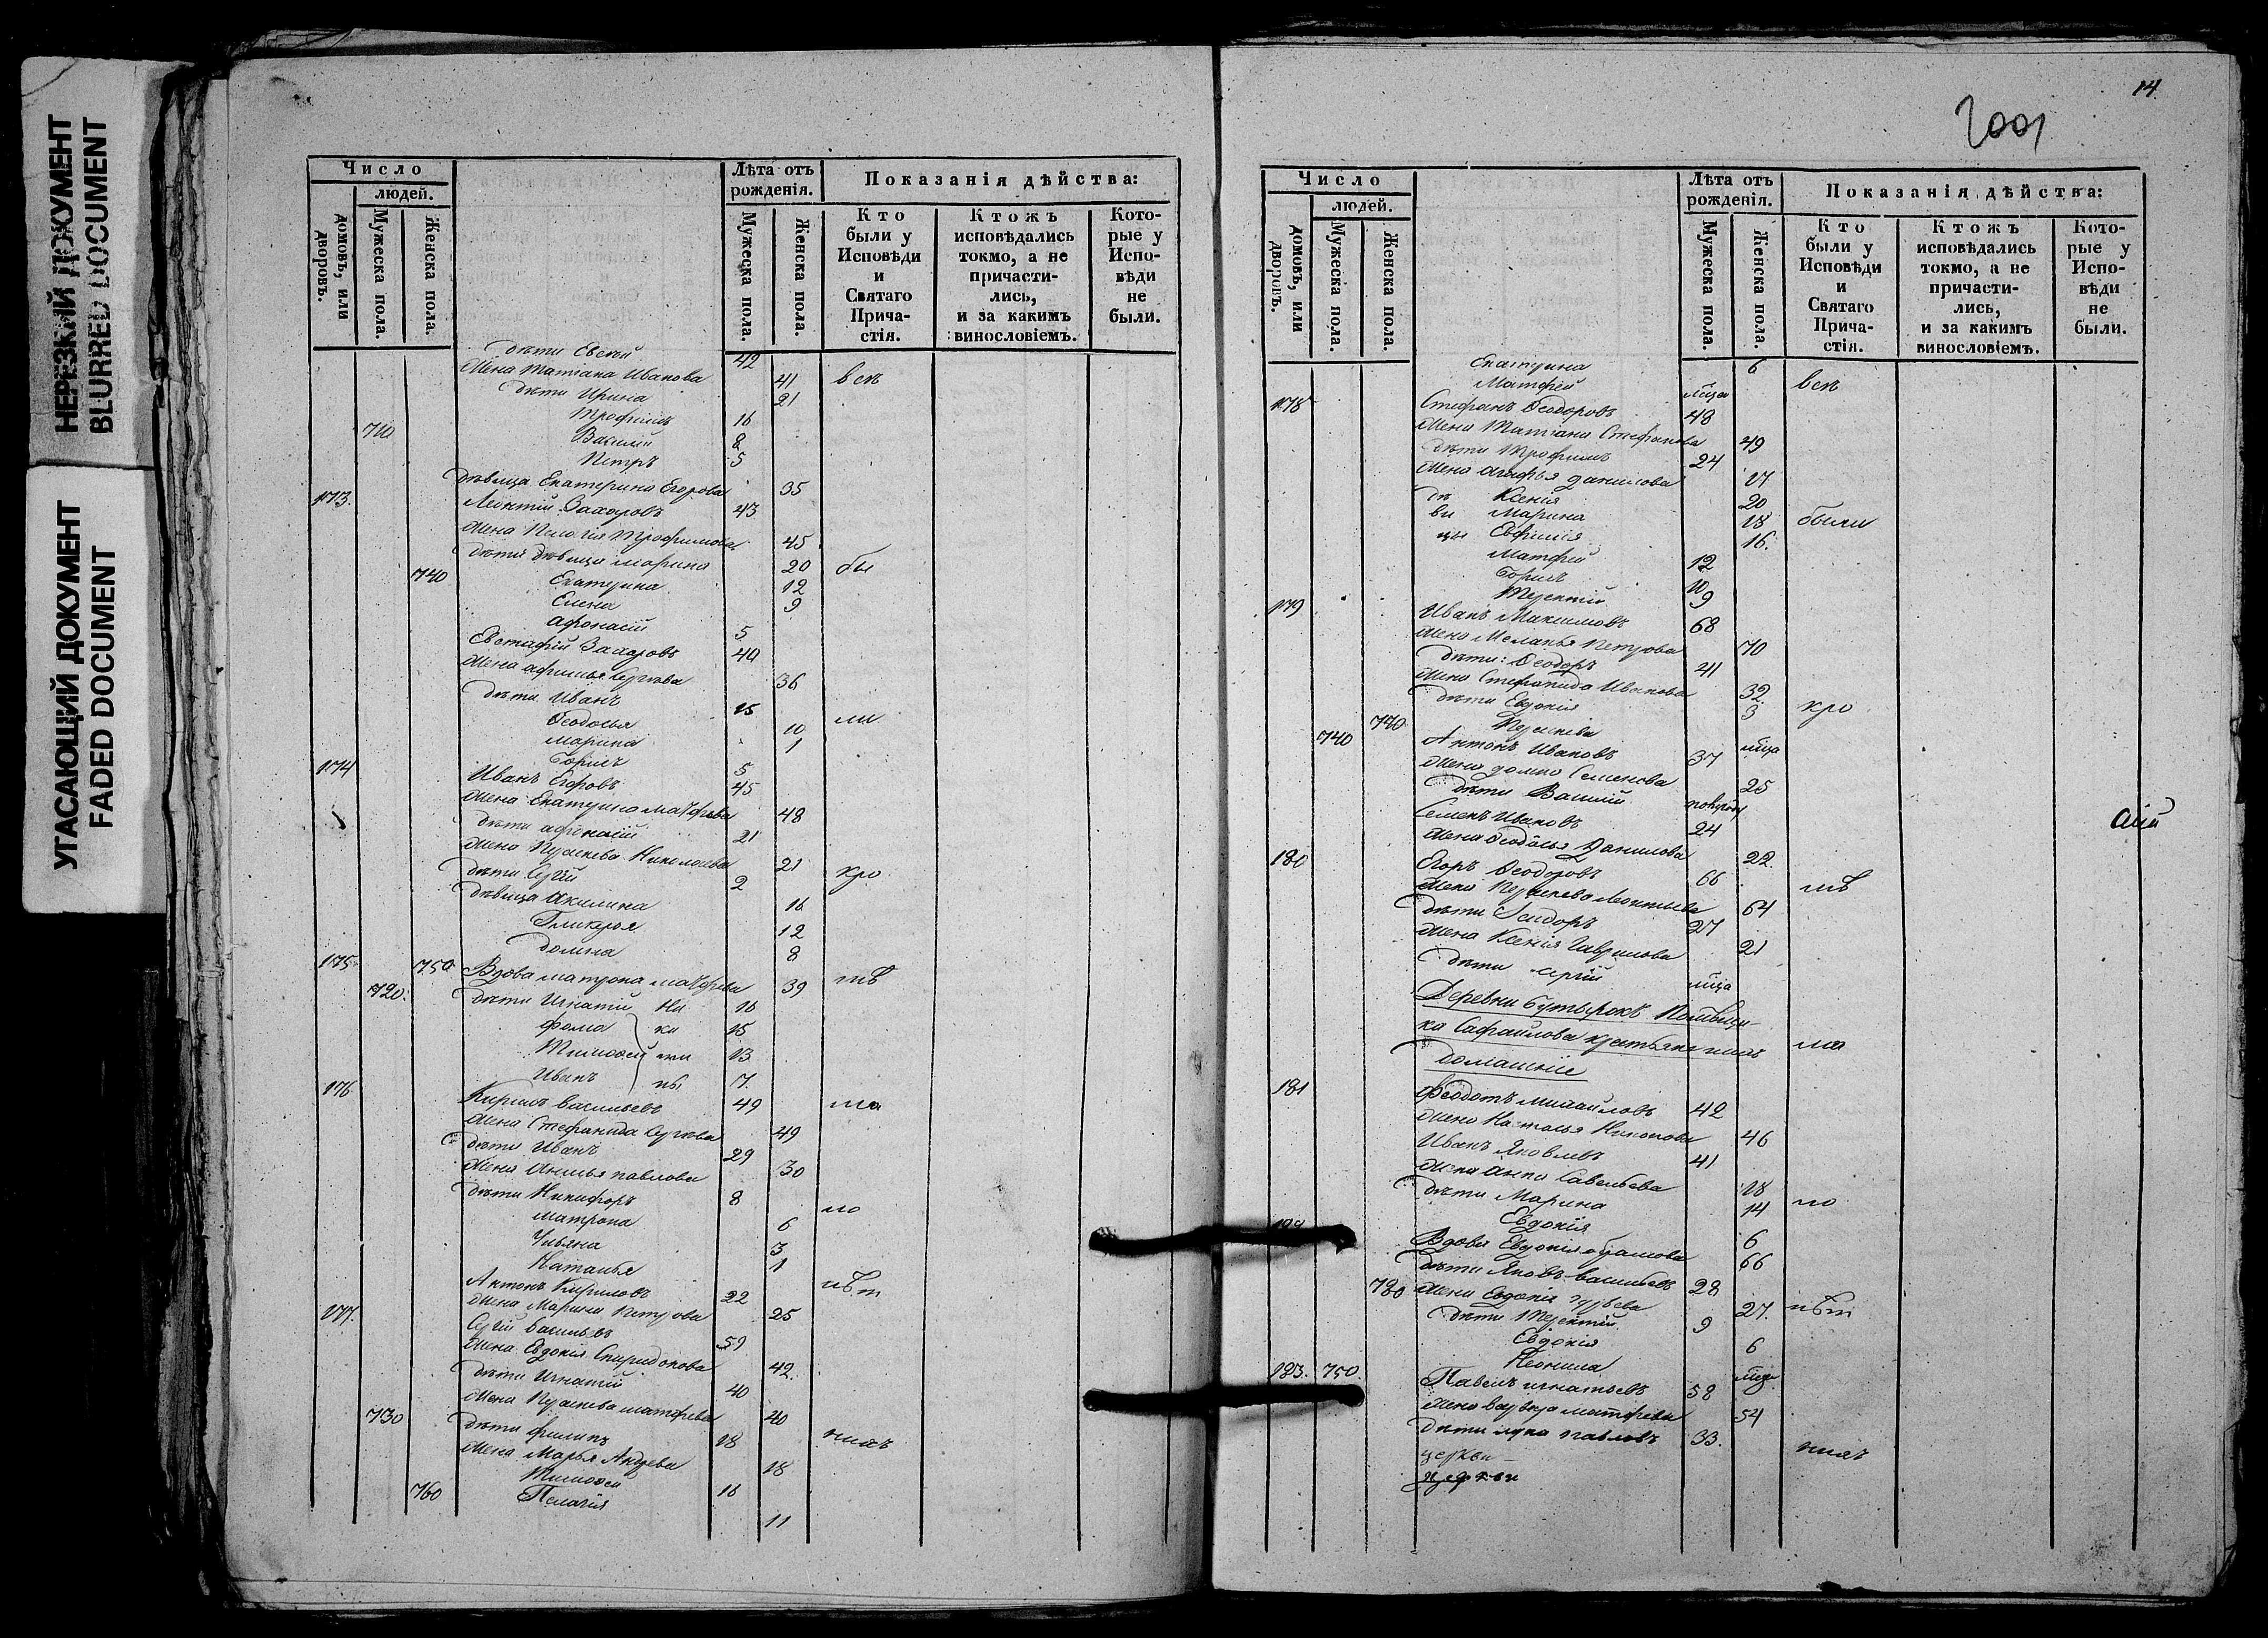 НЕРЕЗКИЙ ДОКУМЕНТ
BLURRED DOCUMENT
УГАСАЮЩИЙ ДОКУМЕНТ
FADED DOCUMENT
Число
людей.
домовъ, или дворовъ.
Мужеска пола.
Женска пола.
Лѣта отъ рожденія.
Мужеска пола.
Женска пола.
Показанія дѣйства:
Кто были у Исповѣди и Святаго Прича-стія.
Ктожъ исповѣдались токмо, а не причасти-лись, и за какимъ винословіемъ.
Кото-рые у Испо-вѣди не были.
дѣти 42
жена Татіана Иванова 41 всѣ
дѣти Ирина 21
Трофимъ 16
710 Василій 8
Петръ 5
дѣвица Екатерина Егорова 35
173. Леонтій Захаровъ 43
жена Пелагія Трофимова 45
дѣти дѣвица Марина 20 бы
740 Екатерина 12
Елена 9
Афонасій 5
Евстафій Захаровъ 40
жена Афимья Сергѣева 36
дѣти Иванъ 15
Ѳеодосья 10 ли
Марина 1
Борисъ 5
174 Иванъ Егоровъ 45
жена Екатерина Матфѣева 48
дѣти Афонасій 21
жена Прасковья Николаева 21
дѣти Сергій 2 кро
дѣвица Акилина 16
Гликерія 12
Домна 8
175 750 Вдова Матрона Матфѣева 39 мѣ
720. дѣти Игнатій 16
Фома 15
Тимоѳей 13
Иванъ 7.
176 Кирилъ Васильевъ 49
жена Стефанида Сергѣева 49
дѣти Иванъ 29
жена Анисья Павлова 30
дѣти Никифоръ 8
Матрона 6
Ульяна 3
Наталья 1
Антонъ Кириловъ 22 лѣт
жена Марина Петрова 25
177. Сергій Васильевъ 59
жена Евдокія Спиридонова 42.
дѣти Игнатій 40
жена Прасковья Матфѣева 40
730 дѣти Филипъ 18 нихъ
жена Марья Андреева 18
Тимоѳей 16
760 Пелагія 11
14.
2001
Число
людей.
домовъ, или дворовъ.
Мужеска пола.
Женска пола.
Лѣта отъ рожденія.
Мужеска пола.
Женска пола.
Показанія дѣйства:
Кто были у Исповѣди и Святаго Прича-стія.
Ктожъ исповѣдались токмо, а не причасти-лись, и за какимъ винословіемъ.
Кото-рые у Испо-вѣди не были.
Екатерина 6
Матфей всѣ
178 Стефанъ Ѳеодоровъ 48
жена Татіана Стефанова 49
дѣти Трофимъ 24
жена Агафья Данилова 17
дѣ Ксенія 20
ви Марина 18 были
цы Евфимія 16.
Матфей 12
Борисъ 10
Терентій 9
179 Иванъ Максимовъ 68
жена Меланья Петрова 70
дѣти: Ѳеодоръ 41
жена Стефанида Иванова 32.
дѣти Евдокія 3 кро
740 770
Антонъ Ивановъ 37
жена Домна Семенова 25
дѣти Василій
Семенъ Ивановъ 24
жена Ѳеодосья Данилова 22.
180 Егоръ Ѳеодоровъ 66 мѣ
жена Прасковья Леонтьева 64
дѣти Исидоръ 27
жена Ксенія Гаврилова 21
дѣти Сергій
Деревни Бутырокъ Помѣщи-
ка крестьяне ихъ
домашніе
181 Ѳеодотъ Михаиловъ 42
жена Наталья 46
Иванъ Яковлевъ 41
жена Анна Савельева 18
дѣти Марина 14
Евдокія 6
Вдова Евдокія Абрамова 66
дѣти Яковъ Васильевъ 28
780 жена Евдокія Гурьева 27. лѣт
дѣти Терентій 9
Евдокія 6
Неонила
183. 750. Павелъ Игнатьевъ 58
жена Варвара Матфѣева 54
дѣти Лука Павловъ 33. нихъ
церкви
церкви